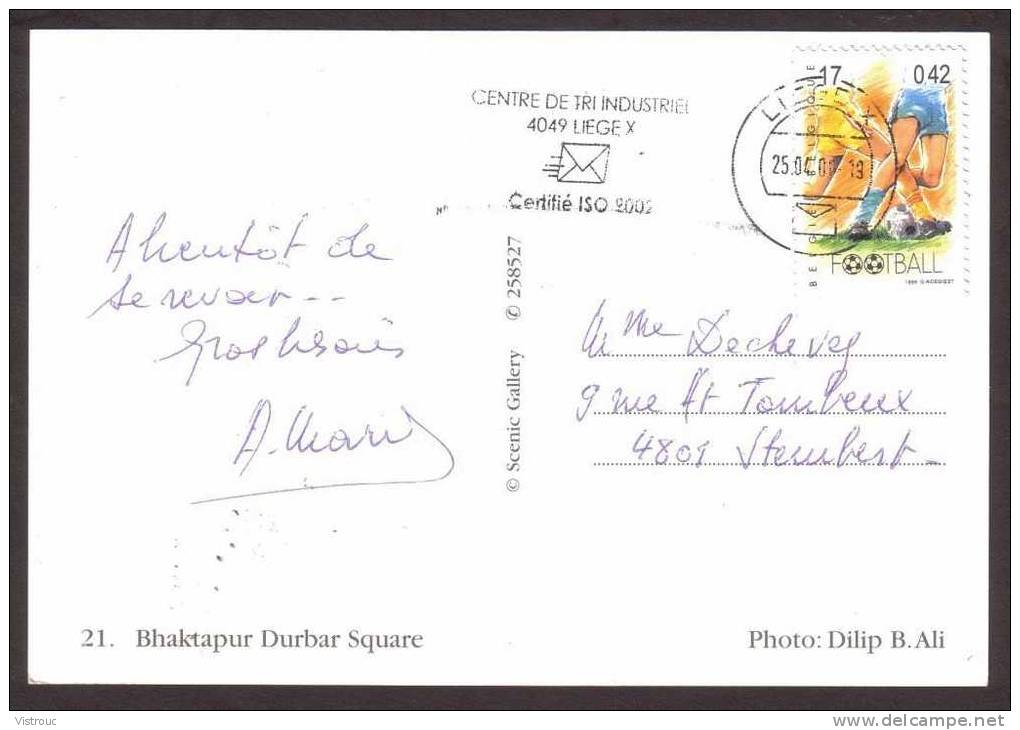 CENTRE DE TRI INDUSTRIEL
4049 LIEGE X
Certifié ISO 9002
25.04.01-19
17 0,42
BELGIE BELGIQUE
FOOTBALL
A bientôt de
te revoir --
Gros bisous
A. Marie
© Scenic Gallery ✆ 258527
Mme
9 rue
4801 Stembert
21. Bhaktapur Durbar Square
Photo: Dilip B. Ali
Vistrouc
www.delcampe.net